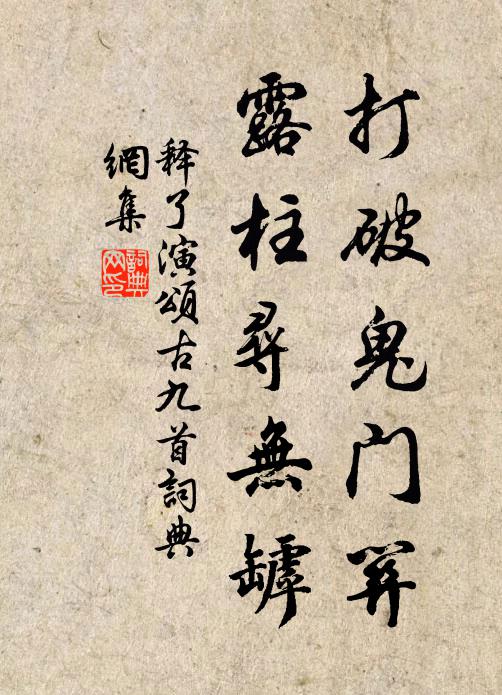 打破鬼门关
露柱尋無罅
释了演頌古九首詞典
網集
詞典
网印